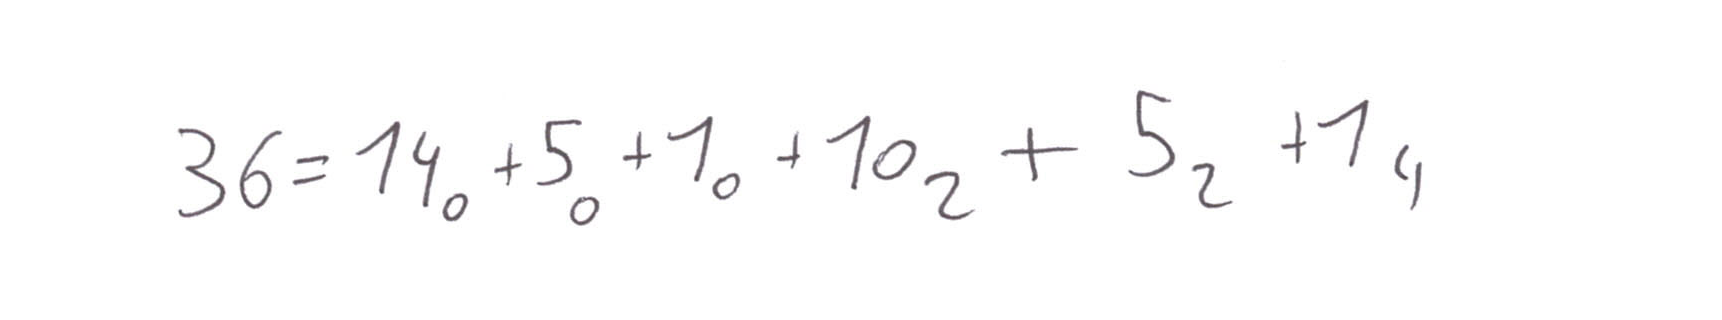 36 = 14₀ + 5₀ + 1₀ + 10₂ + 5₂ + 1₄